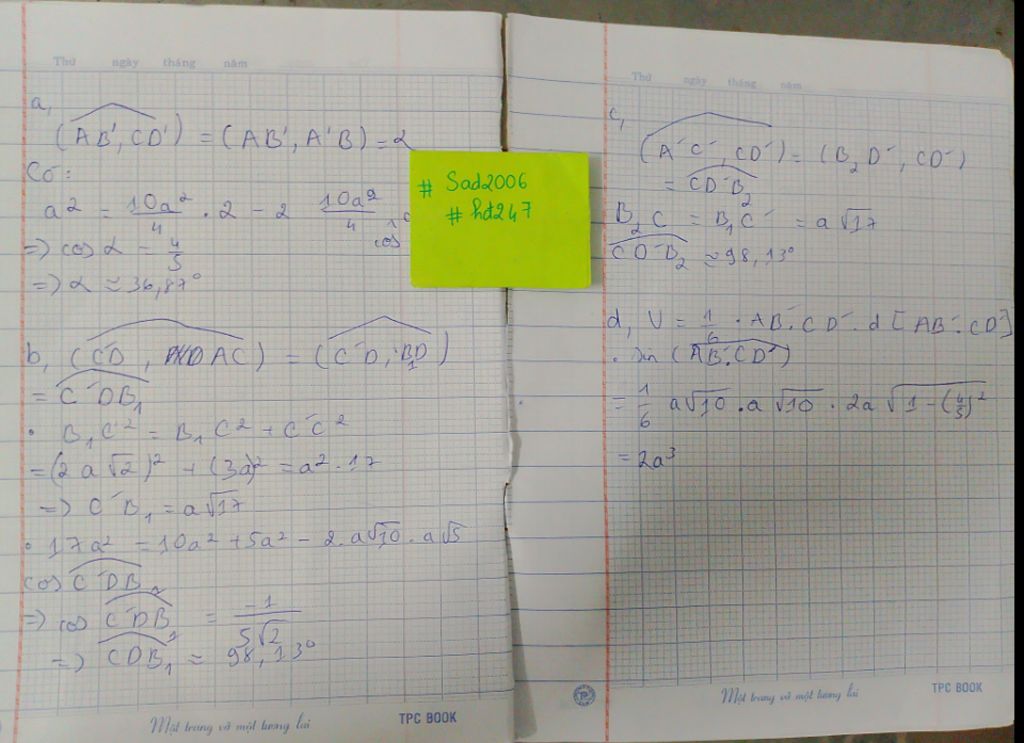 Thứ ngày tháng năm
a,
(AB', CD') = (AB', A'B) = α
Có:
a² = 10a²/4 . 2 - 2 10a²/4 cos
=> cos α = 4/5
=> α ≈ 36,87°
b, (C'D, AC) = (C'D, B₁D)
= C'DB₁
• B₁C'² = B₁C² + C'C²
= (2a√2)² + (3a)² = a².17
=> C'B₁ = a√17
• 17a² = 10a² + 5a² - 2.a√10.a√5
cos C'DB₁
=> cos C'DB₁ = -1/5√2
=> CDB₁ ≈ 98,13°
Một trang vở một tương lai
TPC BOOK
# Sad2006
# hd247
Thứ ngày tháng năm
c,
(A'C', CD') = (B₂D', CD')
= CD'B₂
B₂C = B₁C' = a√17
CD'B₂ ≈ 98,13°
d, V = 1/6 . AB'.CD'.d[AB'.CD']
. sin (AB'.CD')
= 1/6 a√10.a√10.2a√1-(4/5)²
= 2a³
Một trang vở một tương lai
TPC BOOK